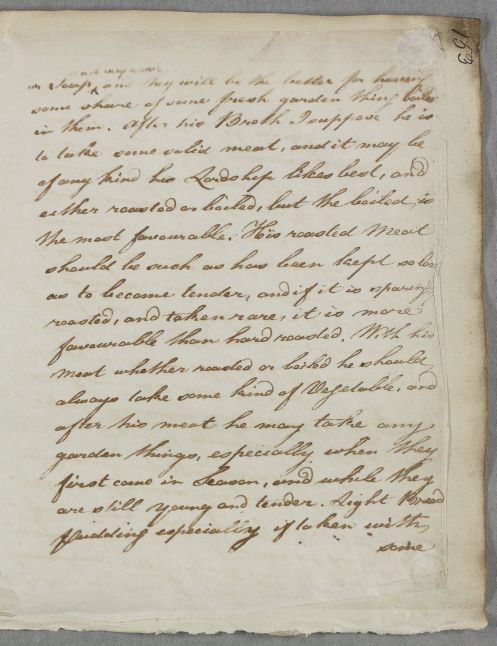 159
or Soup, and they will be the better for having
some share of some fresh garden thing boiled
in them. After his Broth I suppose he is
to take some solid meat, and it may be
of any kind his Lordship likes best, and
either roasted or boiled, but the boiled is
the most favourable. His roasted Meat
should be such as has been kept so long
as to become tender, and if it is sparing
roasted, and taken rare, it is more
favourable than hard roasted. With his
Meat whether roasted or boild he should
always take some kind of Vegetable, and
after his meat he may take any
garden things, especially, when they
first come in Season, and while they
are still young and tender. Light Bread
Pudding especially if taken with
some